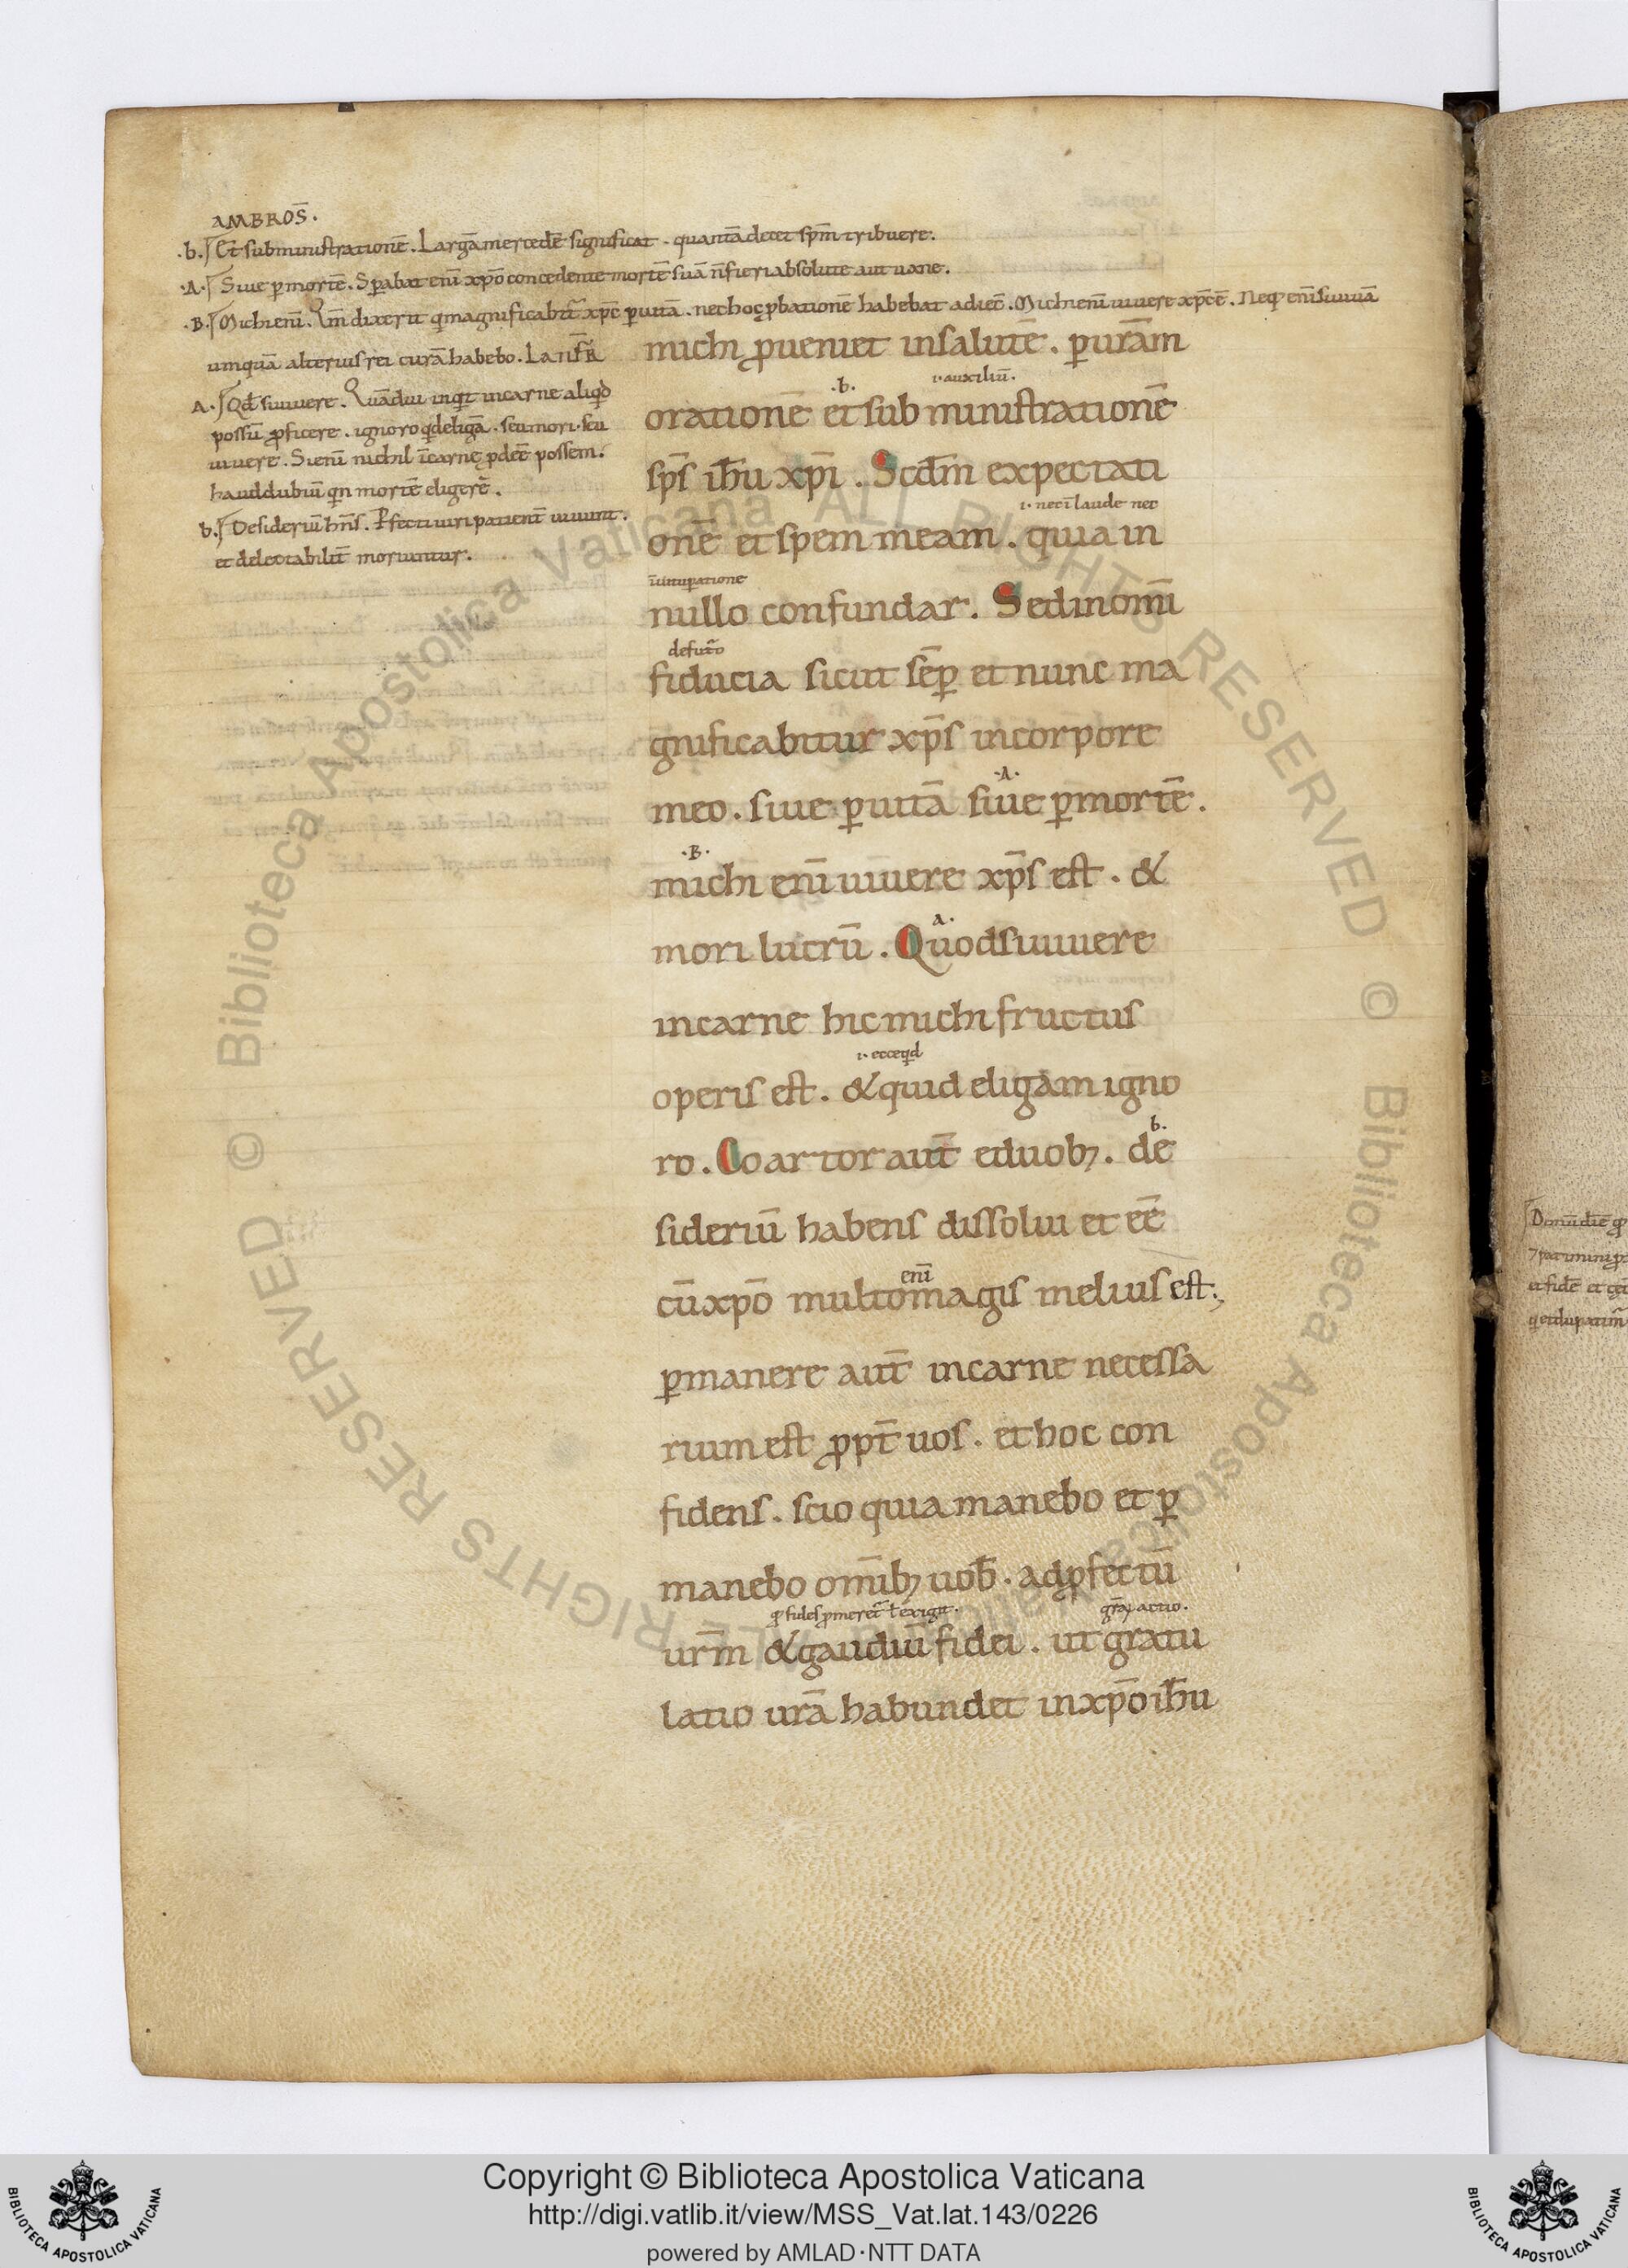 AMBROS̄.
.b. Et subministrationē. Largā mercedē significat. quantā decet sp̄m tribuere.
.A. Siue ꝑ mortē. Sꝑabat enī xp̄o concedente mortē suā n̄ fieri absolute aut uane.
.B. Michi enī. Qm̄ dixerit q magnificabit̄ xp̄c ꝑ uitā. nec hoc ꝓbationē habebat adiec̄. Michi enī uiuere xp̄c ē. Neqꝫ enī si uiuā
umquā alterius rei curā habebo. Lanfr̄
A. Qd̄ si uiuere. Quādiu inqit in carne aliqd
possū ꝓficere. ignoro qd eligā. seu mori. seu
uiuere. Si enī nichil ī carne ꝓdeē possem.
haud dubiū qin mortē eligerē.
b. Desideriū hn̄s. Ꝑfecti uiri patient̄ uiuunt.
et delectabilit̄ moriuntur.
michi ꝓueniet in salutē. ꝑ ur̄am
.b. ı. auxiliū.
orationē et sub ministrationē
sp̄s ih̄u xp̄i. Scd̄m expectati
ı. nec ī laude nec
onē et spem meam. quia in
ī uituꝑatione
nullo confundar. Sed in om̄i
de fut̄o
fiducia sicut sēꝑ et nunc ma
gnificabitur xp̄s in corpore
.A.
meo. siue ꝑ uitā siue ꝑ mortē.
.B.
michi enī uiuere xp̄s est. &
a.
mori lucrū. Quod si uiuere
in carne hic michi fructus
ı. ecce qid
operis est. & quid eligam igno
b.
ro. Coartor aut̄ e duobꝫ. de
sideriū habens dissolui et eē
enī
cū xp̄o multo magis melius est;
ꝑmanere aut̄ in carne necessa
rium est ꝓpt̄ uos. et hoc con
fidens. scio quia manebo et ꝑ
manebo om̄ibꝫ uob̄. ad ꝓfectū
q fides ꝓmeret̄ t̄ exigit. gr̄aꝝ actio.
ur̄m & gaudiū fidei. ut gratu
latio ur̄a habundet in xp̄o ih̄u
Copyright © Biblioteca Apostolica Vaticana
http://digi.vatlib.it/view/MSS_Vat.lat.143/0226
powered by AMLAD·NTT DATA